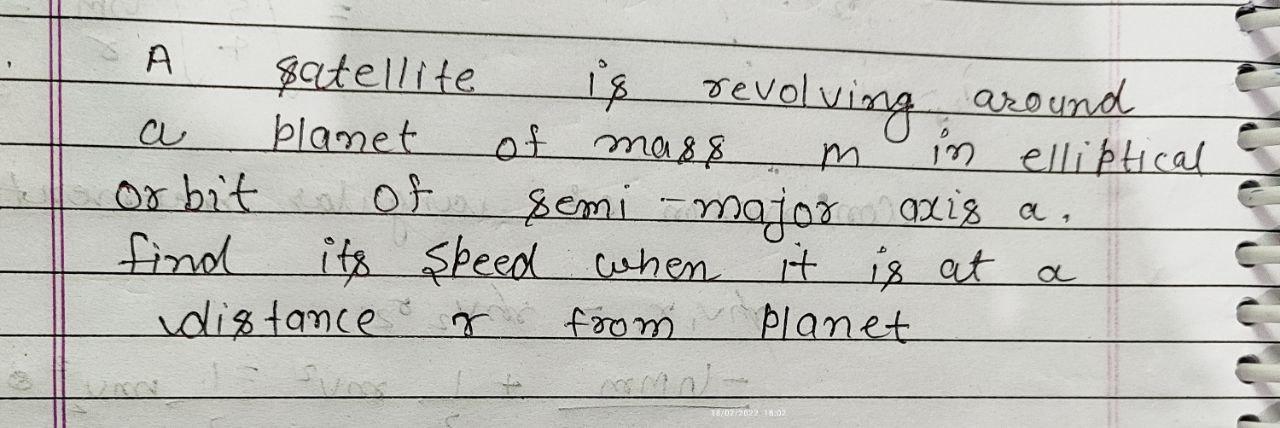 A satellite is revolving around
a planet of mass m in elliptical
orbit of semi-major axis a.
find its speed when it is at a
distance r from planet
18/02/2022 16:02